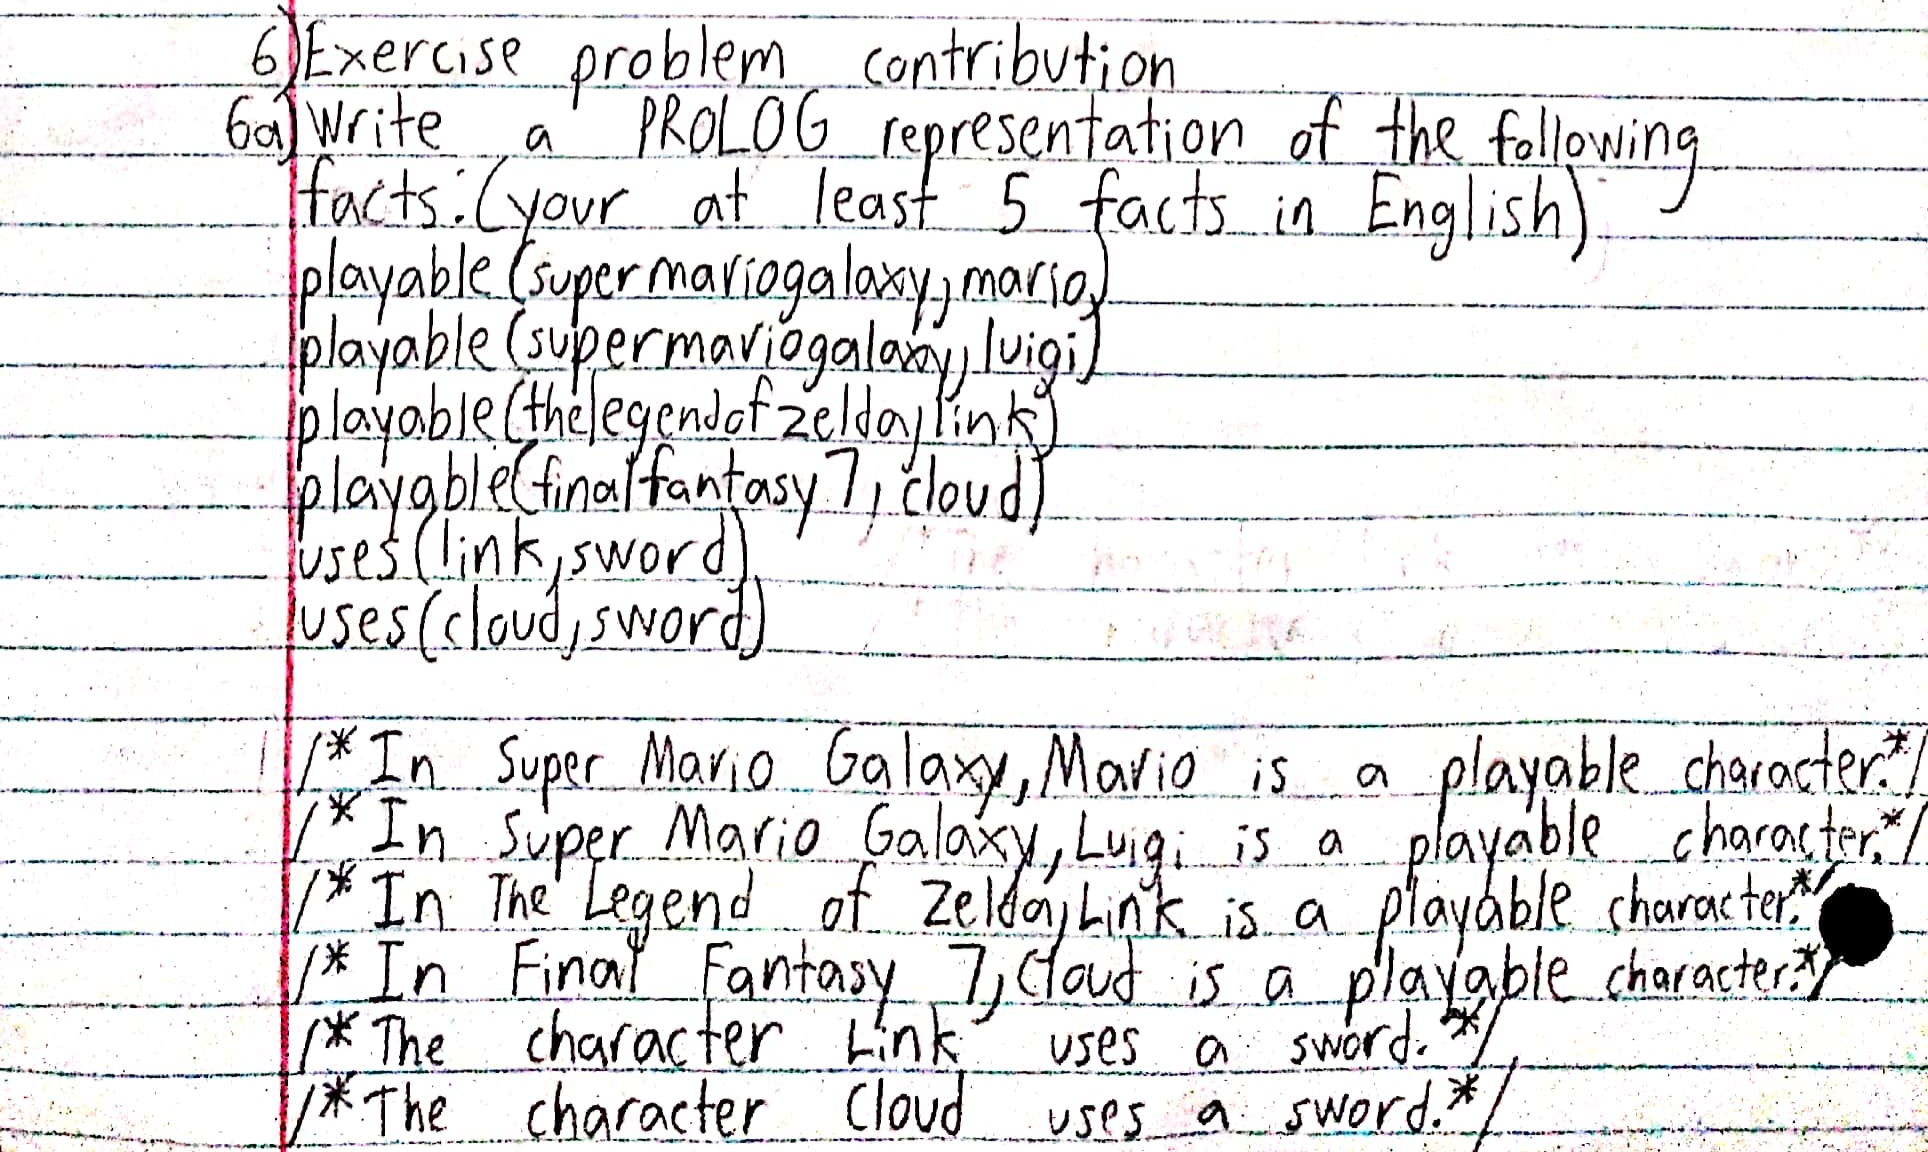 6) Exercise problem contribution
6a) Write a PROLOG representation of the following
facts: (your at least 5 facts in English)
playable(supermariogalaxy, mario)
playable(supermariogalaxy, luigi)
playable(thelegendofzelda, link)
playable(finalfantasy7, cloud)
uses(link, sword)
uses(cloud, sword)
/* In Super Mario Galaxy, Mario is a playable character. */
/* In Super Mario Galaxy, Luigi is a playable character. */
/* In The Legend of Zelda, Link is a playable character. */
/* In Final Fantasy 7, Cloud is a playable character. */
/* The character Link uses a sword. */
/* The character Cloud uses a sword. */